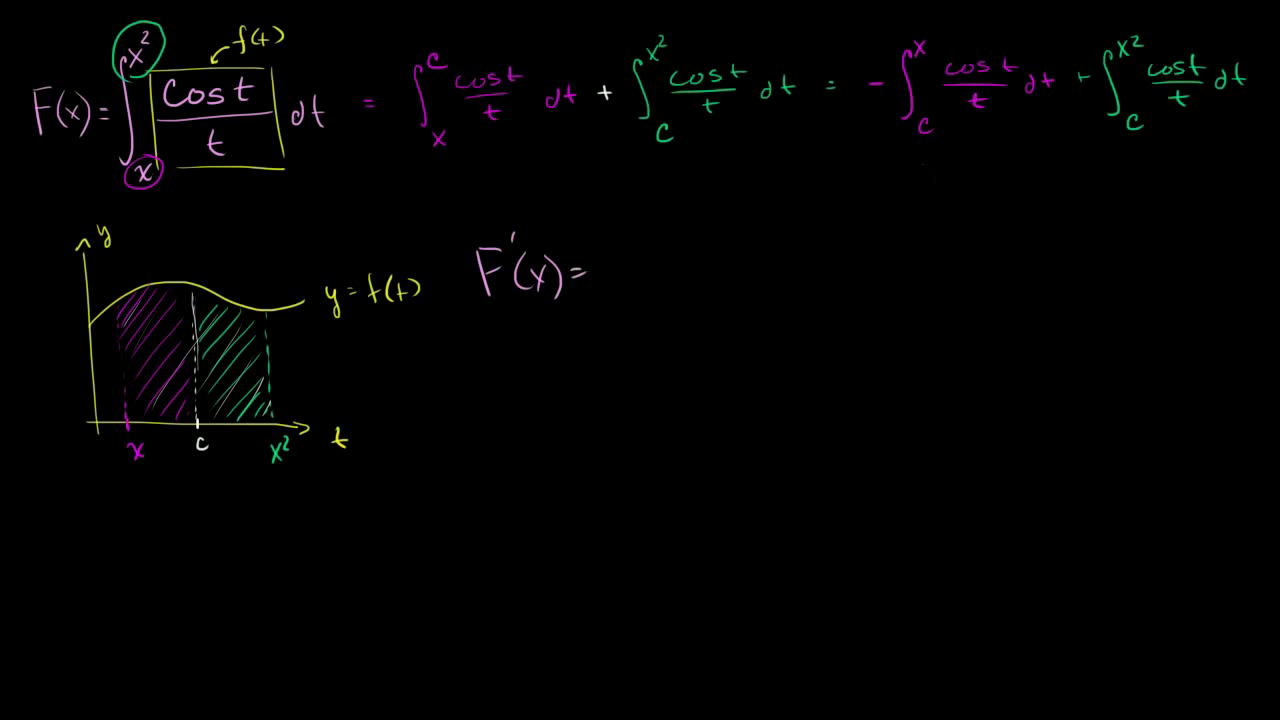 f(t)
F(x) = ∫_x^{x²} cos t / t dt = ∫_x^c cos t / t dt + ∫_c^{x²} cos t / t dt = - ∫_c^x cos t / t dt + ∫_c^{x²} cos t / t dt
y
F'(x) =
y = f(t)
t
x c x²